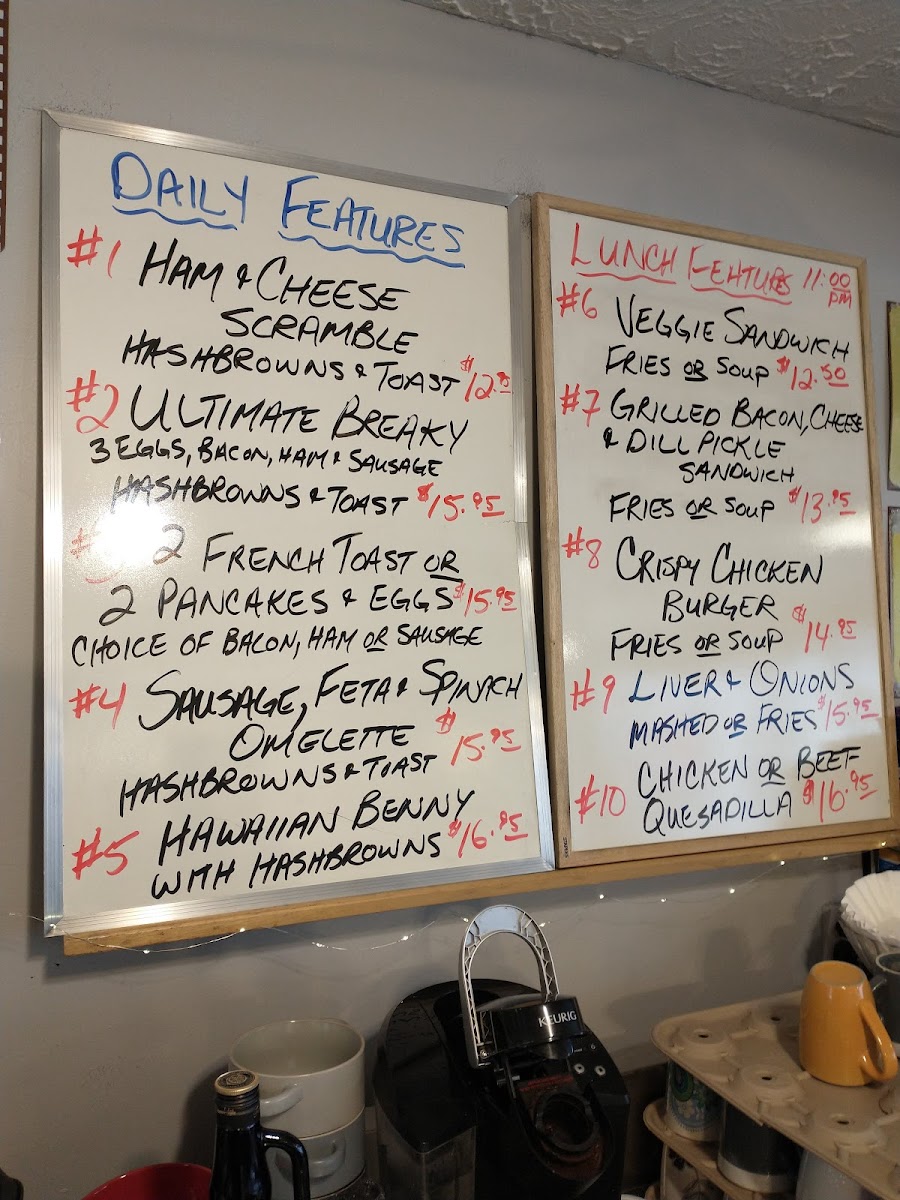 DAILY FEATURES
#1 HAM & CHEESE
SCRAMBLE
HASHBROWNS & TOAST
#2 ULTIMATE BREAKY
3 EGGS, BACON, HAM & SAUSAGE
HASHBROWNS & TOAST $15.95
2 FRENCH TOAST OR
2 PANCAKES & EGGS $15.95
CHOICE OF BACON, HAM OR SAUSAGE
#4 SAUSAGE, FETA & SPINICH
OMELETTE $15.95
HASHBROWNS & TOAST
#5 HAWAIIAN BENNY
WITH HASHBROWNS $16.95
LUNCH FEATURES 11:00
PM
#6 VEGGIE SANDWICH
FRIES OR SOUP $12.50
#7 GRILLED BACON, CHEESE
& DILL PICKLE
SANDWICH
FRIES OR SOUP $13.95
#8 CRISPY CHICKEN
BURGER
FRIES OR SOUP $14.95
#9 LIVER & ONIONS
MASHED OR FRIES $15.95
#10 CHICKEN OR BEEF
QUESADILLA $16.95
KEURIG